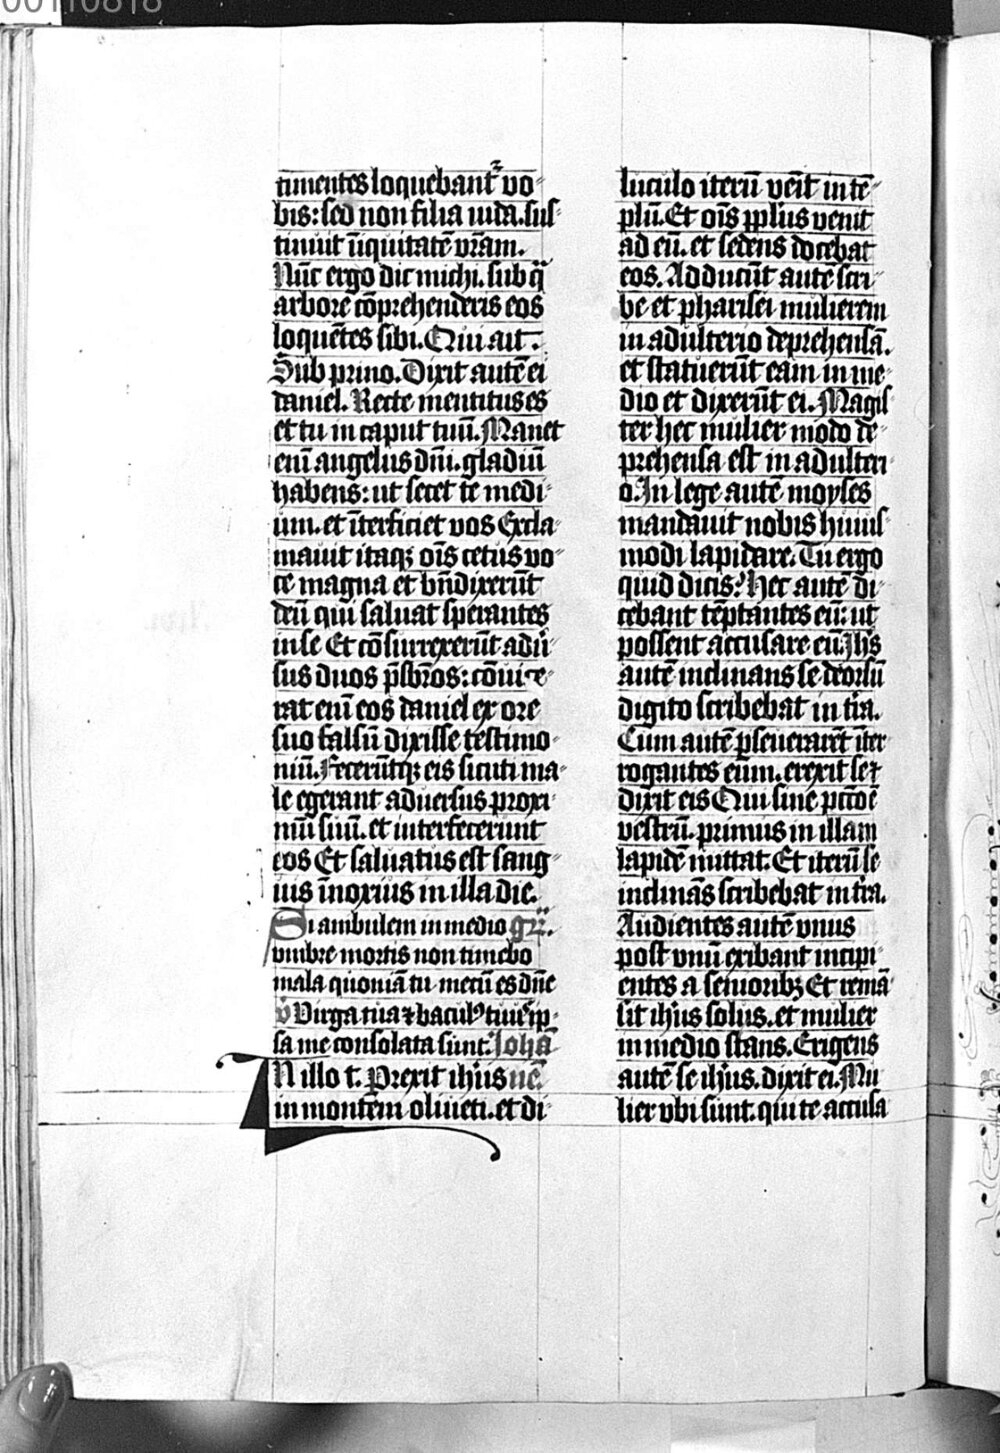 00110818
timentes loquebant᷑ vo
bis: sed non filia iuda. sus
tinuit īiquitatē vr̄am.
Nūc ergo dic michi. sub qͣ
arbore cōprehenderis eos
loquētes sibi. Qui ait.
Sub prino. Dixit autē ei
daniel. Recte mentitus es
et tu in caput tuū. Manet
enī angelus dn̄i. gladiū
habens: ut secet te medi
um. et īterficiet vos Excla
mauit itaqꝫ oīs cetus vo
ce magna et bn̄dixerūt
deū qui saluat sperantes
in se Et cōsurrexerūt adū
sus duos p̄sbr̄os: cōuice
rat enī eos daniel ex ore
suo falsū dixisse testimo
niū. Fecerūtqꝫ eis sicuti ma
le egerant aduersus proxi
mū suū. et interfecerunt
eos Et saluatus est sang
uis īnoxius in illa die.
Si ambulem in medio gr̄.
vmbre mortis non timebo
mala quoniā tu mecū es dn̄e
v̄ Virga tua ⁊ baculꝰ tuus ip
sa me consolata sunt. Johā
N illo t. Prexit ihūs
in montem oliueti. et di
luculo iterū venit in tē
plū. Et oīs pplūs venit
ad eū. et sedens docebat
eos. Adducūt autē scri
be et pharisei mulierem
in adulterio deprehensā.
et statuerūt eam in me
dio et dixerūt ei. Magis
ter hec mulier modo de
prehensa est in adulteri
o. In lege autē moyses
mandauit nobis huius
modi lapidare. Tu ergo
quid dicis? Hec autē di
cebant tēptantes eū: ut
possent accusare eū Jhs̄
autē inclinans se deorsū
digito scribebat in tr̄a.
Cum autē ꝑseuerarēt īter
rogantes eum. erexit se ⁊
dixit eis Qui sine pctō ē
vestrū. primus in illam
lapidē mittat. Et iterū se
inclinās scribebat in tr̄a.
Audientes autē vnus
post vnū exibant incipi
entes a senioribꝫ Et remā
sit ihūs solus. et mulier
in medio stans. Erigens
autē se ihūs. dixit ei. Mu
lier vbi sunt. qui te accusa